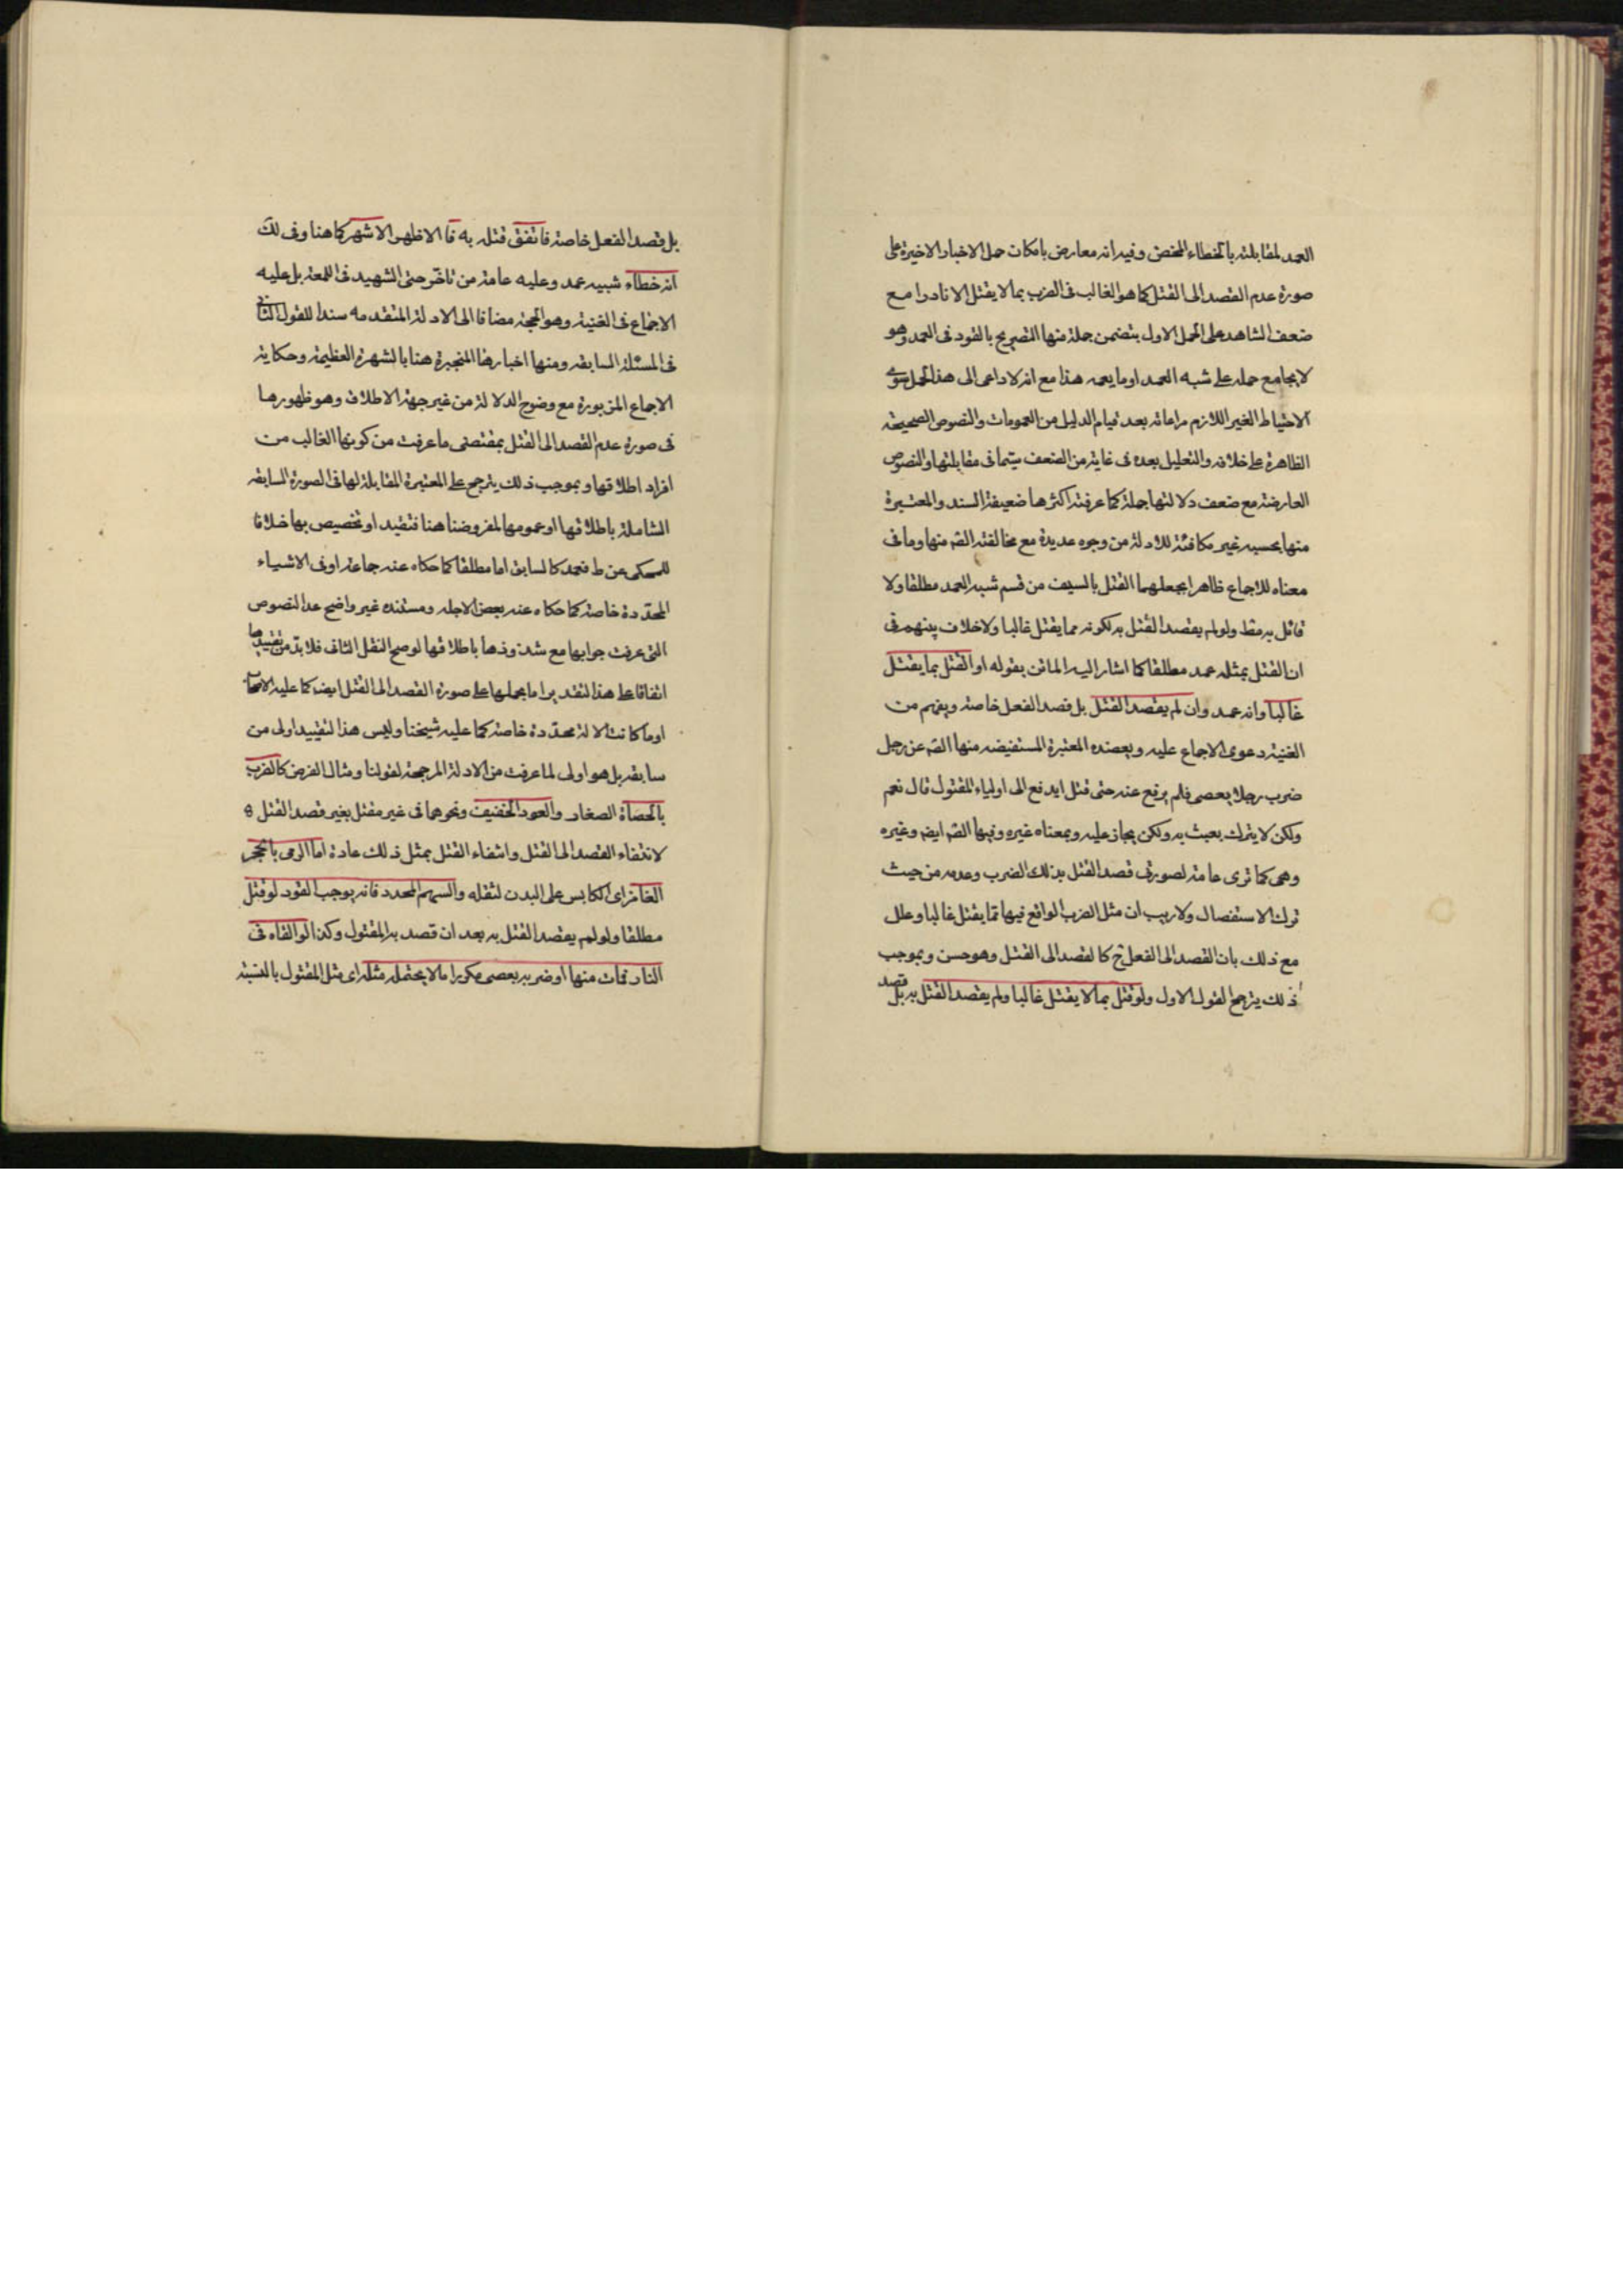 العمد لمقابلته بالخطاء المحض وفيه انه معارض بامكان حمل الاخبار الاخيرة على
صورة عدم القصد الى القتل كما هو الغالب فى الضرب بما لا يقتل الا نادرا مع
ضعف الشاهد على الحمل الاول بتضمن جملة منها التصريح بالقود فى العمد وهو
لا يجامع حمله على شبه العمد او ما يعمه هذا مع انه لا داعى الى هذا الحمل سوى
الاحتياط الغير اللازم مراعاته بعد قيام الدليل من العمومات والنصوص الصحيحة
الظاهرة على خلافه والتعليل بعده فى غاية من الضعف سيما فى مقابلتها والنصوص
المعارضة مع ضعف دلالتها جملة كما عرفته اكثرها ضعيفة السند والمعتبرة
منها بحسبه غير مكافئة للادلة من وجوه عديدة مع مخالفته الصّ منها وما فى
معناه للاجماع ظاهرا بجعلهما القتل بالسيف من قسم شبه العمد مطلقا ولا
قائل به مقط ولو لم يقصد القتل به لكونه مما يقتل غالبا ولا خلاف بينهم فى
ان القتل بمثله عمد مطلقا كما اشار اليه الماتن بقوله او القتل بما يقتل
غالبا وانه عمد وان لم يقصد القتل بل قصد الفعل خاصة ويفهم من
الغنية دعوى الاجماع عليه ويعضده المعتبرة المستفيضه منها الصّ عن رجل
ضرب رجلا بعصى فلم يرفع عنه حتى قتل ايدفع الى اولياء المقتول قال نعم
ولكن لا يترك يعبث به ولكن يجاز عليه وبمعناه غيره وفيها الصّ ايض وغيره
وهى كما ترى عامة لصورتى قصد القتل بذلك الضرب وعدمه من حيث
ترك الاستفصال ولا ريب ان مثل الضرب الواقع فيها مما يقتل غالبا وعلل
مع ذلك بان القصد الى الفعل ح كالقصد الى القتل وهو حسن وبموجب
ذلك يترجح القول الاول ولو قتل بما لا يقتل غالبا ولم يقصد القتل به بل قصد
بل قصد الفعل خاصة فاتفق قتله به فا الاظهر الاشهر كما هنا وفى لك
انه خطاء شبيه عمد وعليه عامة من تاخّر حتى الشهيد فى اللمعة بل عليه
الاجماع فى الغنية وهو الحجة مضافا الى الادلة المتقدمه سندا للقول الثانى
فى المسئلة السابقه ومنها اخبارها المنجبرة هنا بالشهرة العظيمة وحكاية
الاجماع المزبورة مع وضوح الدلالة من غير جهة الاطلاق وهو ظهورها
فى صورة عدم القصد الى القتل بمقتضى ما عرفت من كونها الغالب من
افراد اطلاقها وبموجب ذلك يترجح على المعتبرة المقابلة لها فى الصورة السابقه
الشاملة باطلاقها او عمومها لمفروضنا هنا فتقيد او تخصيص بها خلافا
للمحكى عن ط فعمد كالسابق اما مطلقا كما حكاه عنه جماعة او فى الاشياء
المحدّدة خاصة كما حكاه عنه بعض الاجله ومستنده غير واضح عدا النصوص
التى عرفت جوابها مع شذوذها باطلاقها لو صح النقل الثانى فلا بدّ من تقييدها
اتفاقا على هذا التقدير اما بحملها على صورة القصد الى القتل ايض كما عليه الاصحاب
او ما كانت الالة محدّدة خاصة كما عليه شيخنا وليس هذا التقييد اولى من
سابقه بل هو اولى لما عرفت من الادلة المرجحة لقولنا ومثال الفرض كالضرب
بالحصاة الصغار والعود الخفيف ونحوهما فى غير مقتل بغير قصد القتل
لانتفاء القصد الى القتل وانتفاء القتل بمثل ذلك عادة اما الرمى بالحجر
الغامز اى الكابس على البدن لثقله والسهم المحدد فانه يوجب القود لو قتل
مطلقا ولو لم يقصد القتل به بعد ان قصد به المقتول وكذا لو القاه فى
النار فمات منها او ضربه بعصى مكررا ما لا يحتمله مثله اى مثل المقتول بالنسبة